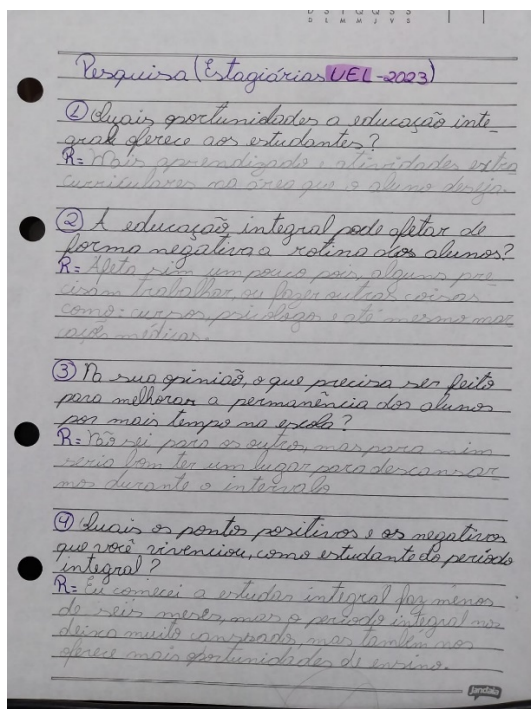 D S T Q Q S S
D L M M J V S
Pesquisa (Estagiárias UEL - 2023)
① Quais oportunidades a educação inte-
gral oferece aos estudantes?
R= Mais aprendizado e atividades extra
curriculares na área que o aluno deseja.
② A educação integral pode afetar de
forma negativa a rotina dos alunos?
R= Afeta sim um pouco pois, alguns pre-
cisam trabalhar, ou fazer outras coisas
como: cursos, psicólogo e até mesmo mar
cações médicas.
③ Na sua opinião, o que precisa ser feito
para melhorar a permanência dos alunos
por mais tempo na escola?
R= Não sei para os outros, mas para mim
seria bom ter um lugar para descansar-
mos durante o intervalo
④ Quais os pontos positivos e os negativos
que você vivenciou, como estudante do período
integral?
R= Eu comecei a estudar integral faz menos
de seis meses, mas o período integral nos
deixa muito cansado, mas também nos
oferece mais oportunidades de ensino.
jandaia